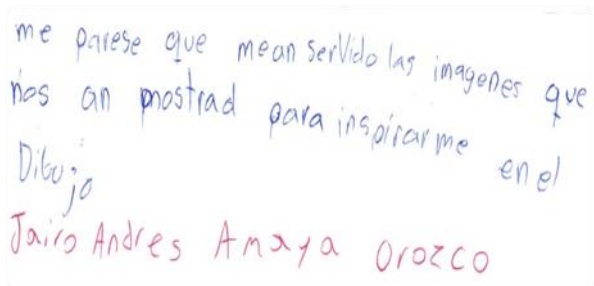 me parese que mean serVido las imagenes que
nos an mostrad para inspirarme en el
Dibujo
Jairo Andres Amaya Orozco